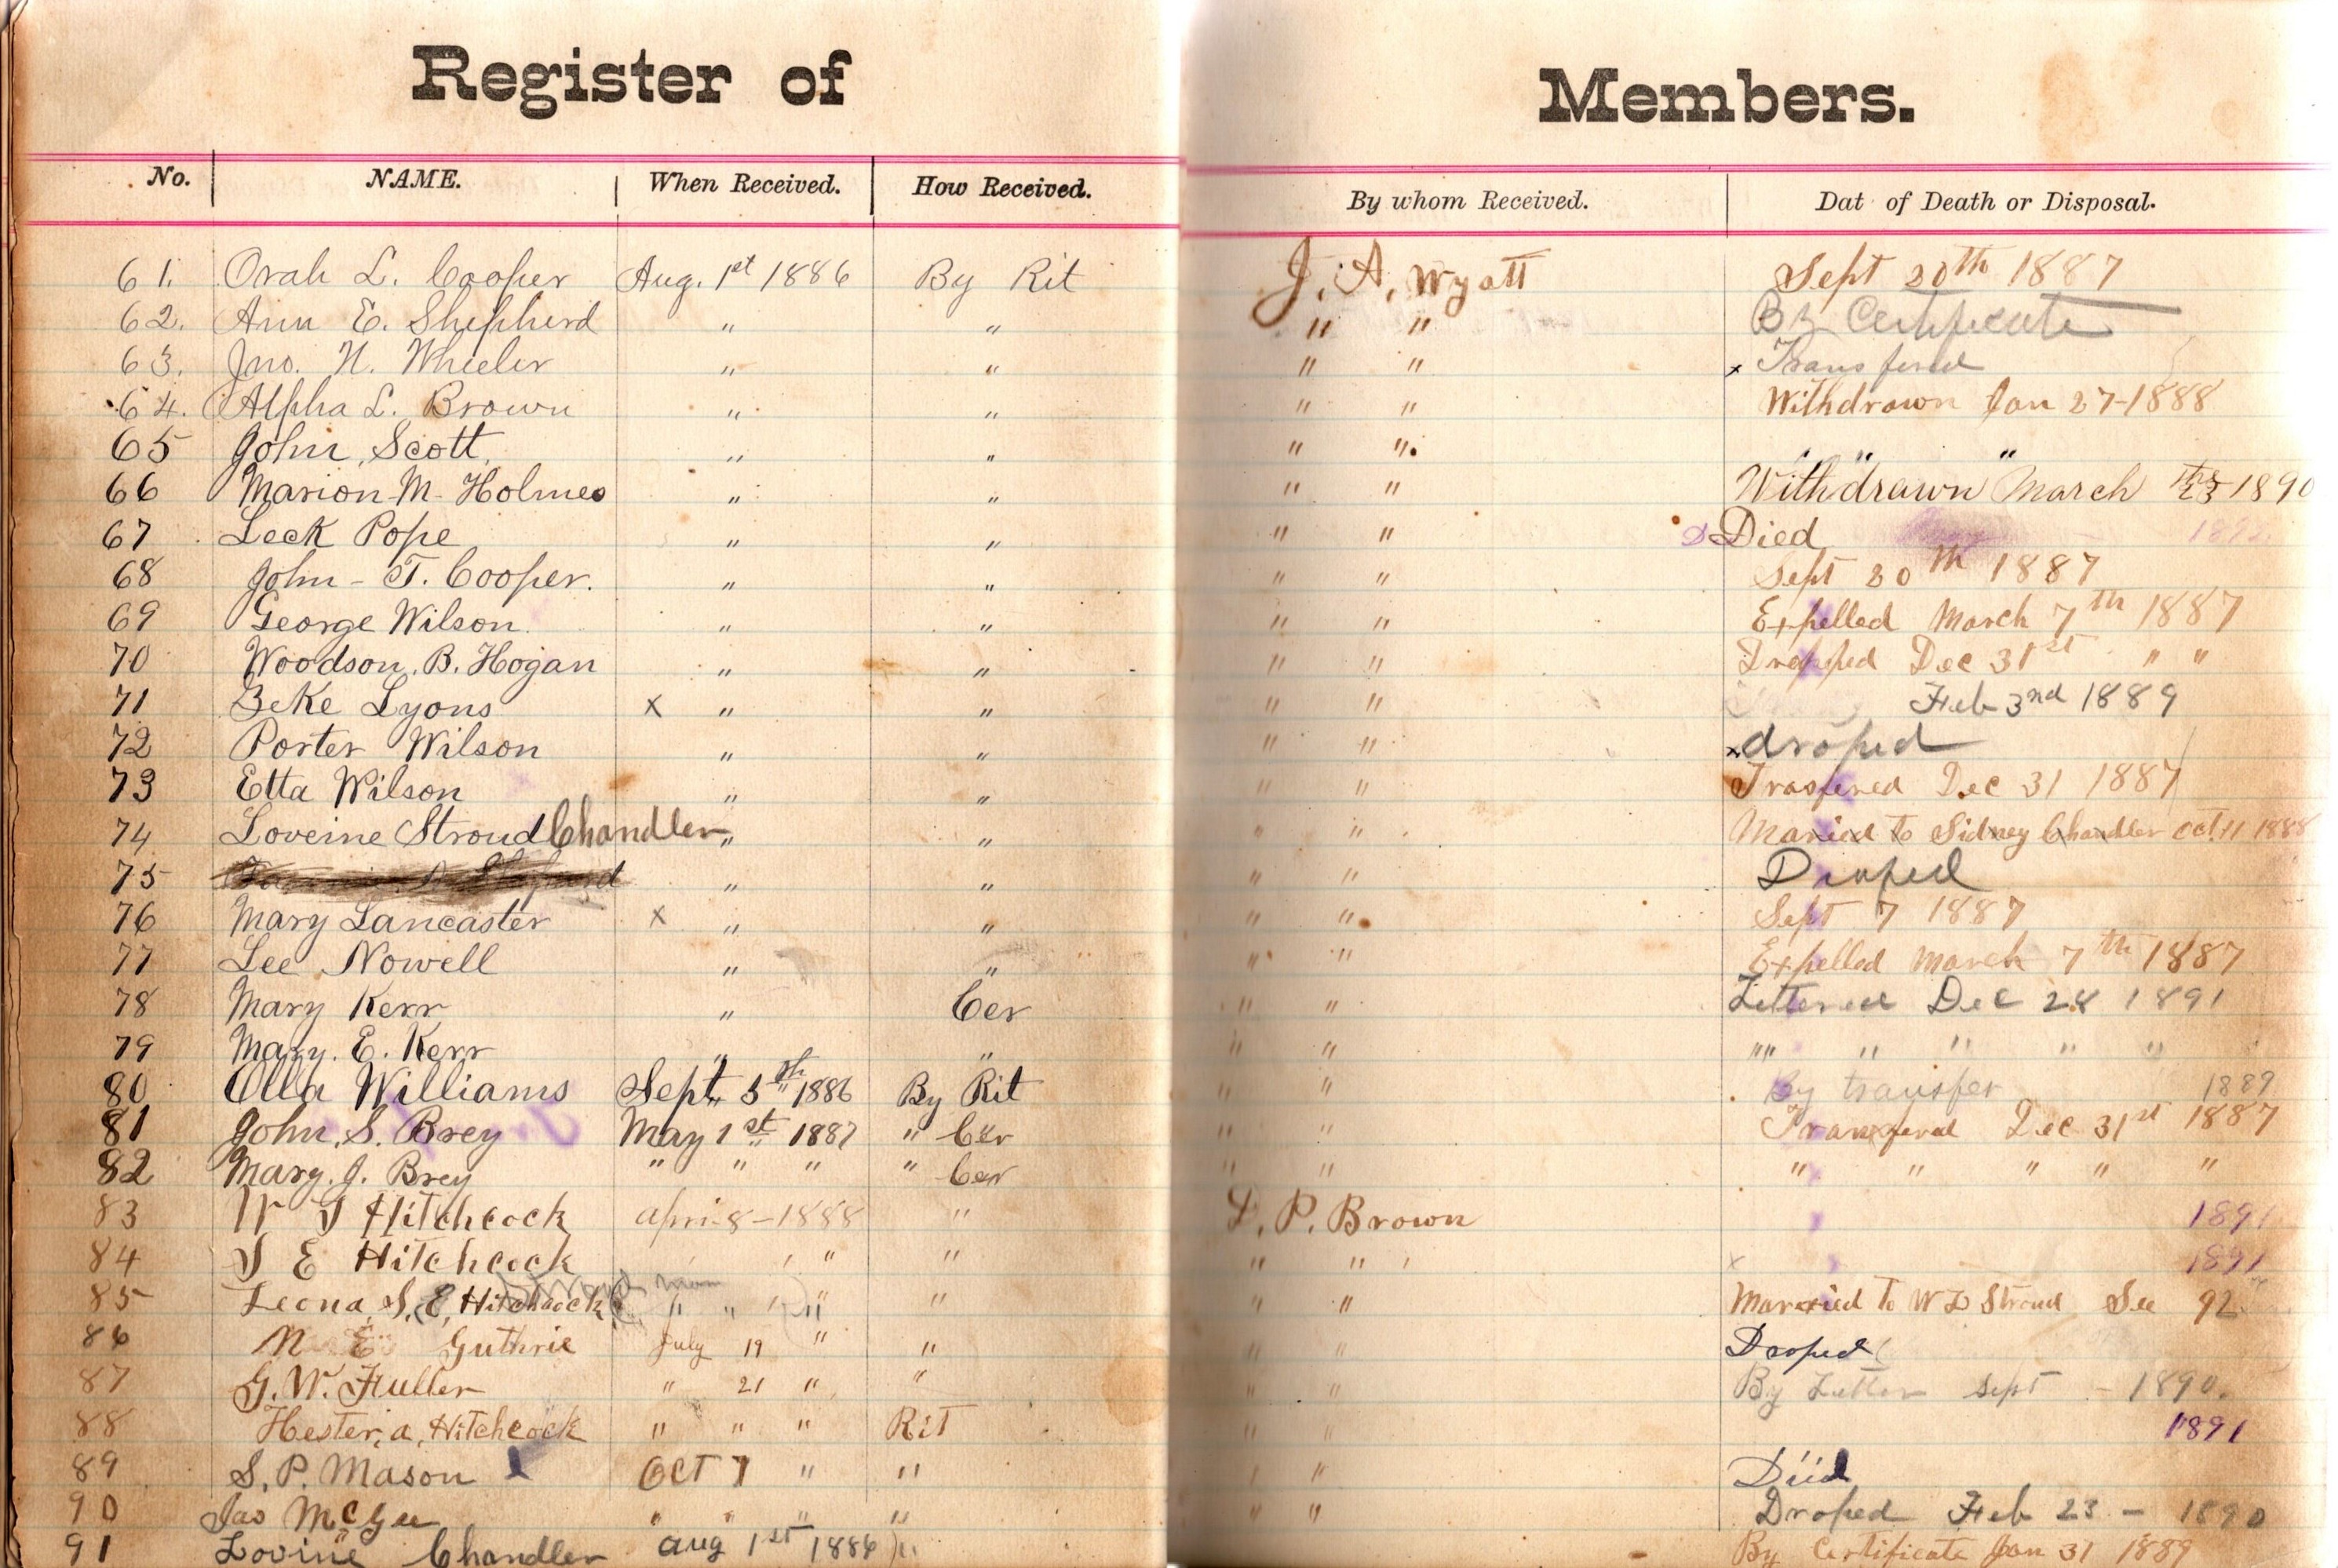 Register of Members.
No. NAME. When Received. How Received. By whom Received. Dat of Death or Disposal.
61. Orah L. Cooper Aug. 1st 1886 By Rit J. A. Wyatt Sept 20th 1887
62. Ann E. Shepherd " " " " By Certificate
63. Jno. H. Wheeler " " " " x Transfered
64. Alpha L. Brown " " " " Withdrawn Jan 27-1888
65 John Scott " " " " " " "
66 Marion M. Holmes " " " " Withdrawn March 1890
67 Leck Pope " " " " Died 1892
68 John - T. Cooper. " " " " Sept 20th 1887
69 George Wilson " " " " Expelled March 7th 1887
70 Woodson. B. Hogan " " " " Dropped Dec 31st " "
71 Zeke Lyons x " " " " Feb 3nd 1889
72 Porter Wilson " " " " x droped
73 Etta Wilson " " " " Trasfered Dec 31 1887
74 Loveine Stroud Chandler " " " " Maried to Sidney Chandler Oct. 11 1888
75 " " " " Droped
76 Mary Lancaster x " " " " Sept 7 1887
77 Lee Nowell " " " " Expelled March 7th 1887
78 Mary Kerr " Cer " " Lettered Dec 28 1891
79 Mary. E. Kerr " " " " "" " " " "
80 Olla Williams Sept. 5th 1886 By Rit " " By transfer 1889
81 John. S. Brey May 1st 1887 " Cer " " Transfered Dec 31st 1887
82 Mary. J. Brey " " " " Cer " " " " " " "
83 W T Hitchcock april-8-1888 " L. P. Brown 1891
84 S E Hitchcock " " " " 1891
85 Leona, S. E, Hitchcock " " " " " " Married to W L Stroud Dec 92
86 N E Guthrie July 19 " " " " Droped
87 G. W. Fuller " 21 " " " " By Letter Sept - 1890.
88 Hester, a, Hitchcock " " " Rit " " 1891
89 S. P. Mason Oct 7 " " " " Died
90 Jas McGee " " " " " " Droped Feb 23 - 1890
91 Lovine Chandler aug 1st 1886 " By Certificate Jan 31 1889